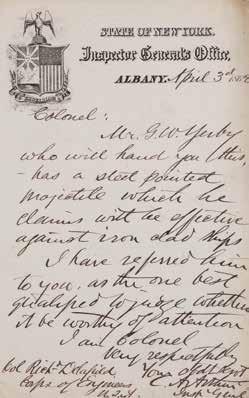 STATE OF NEW YORK.
Inspector General's Office,
ALBANY, April 3d, 186
Colonel:
Mr. G. W. Yerby
who will hand you this,
- has a steel pointed
projectile which he
claims will be effective
against iron clad ships
I have referred him
to you, as the one best
qualified to judge whether
it be worthy of attention
I am Colonel
Very respectfully
Your obdt Servt
Col Richd Delafield C. A. Arthur
Corps of Engineers Insp. Genl